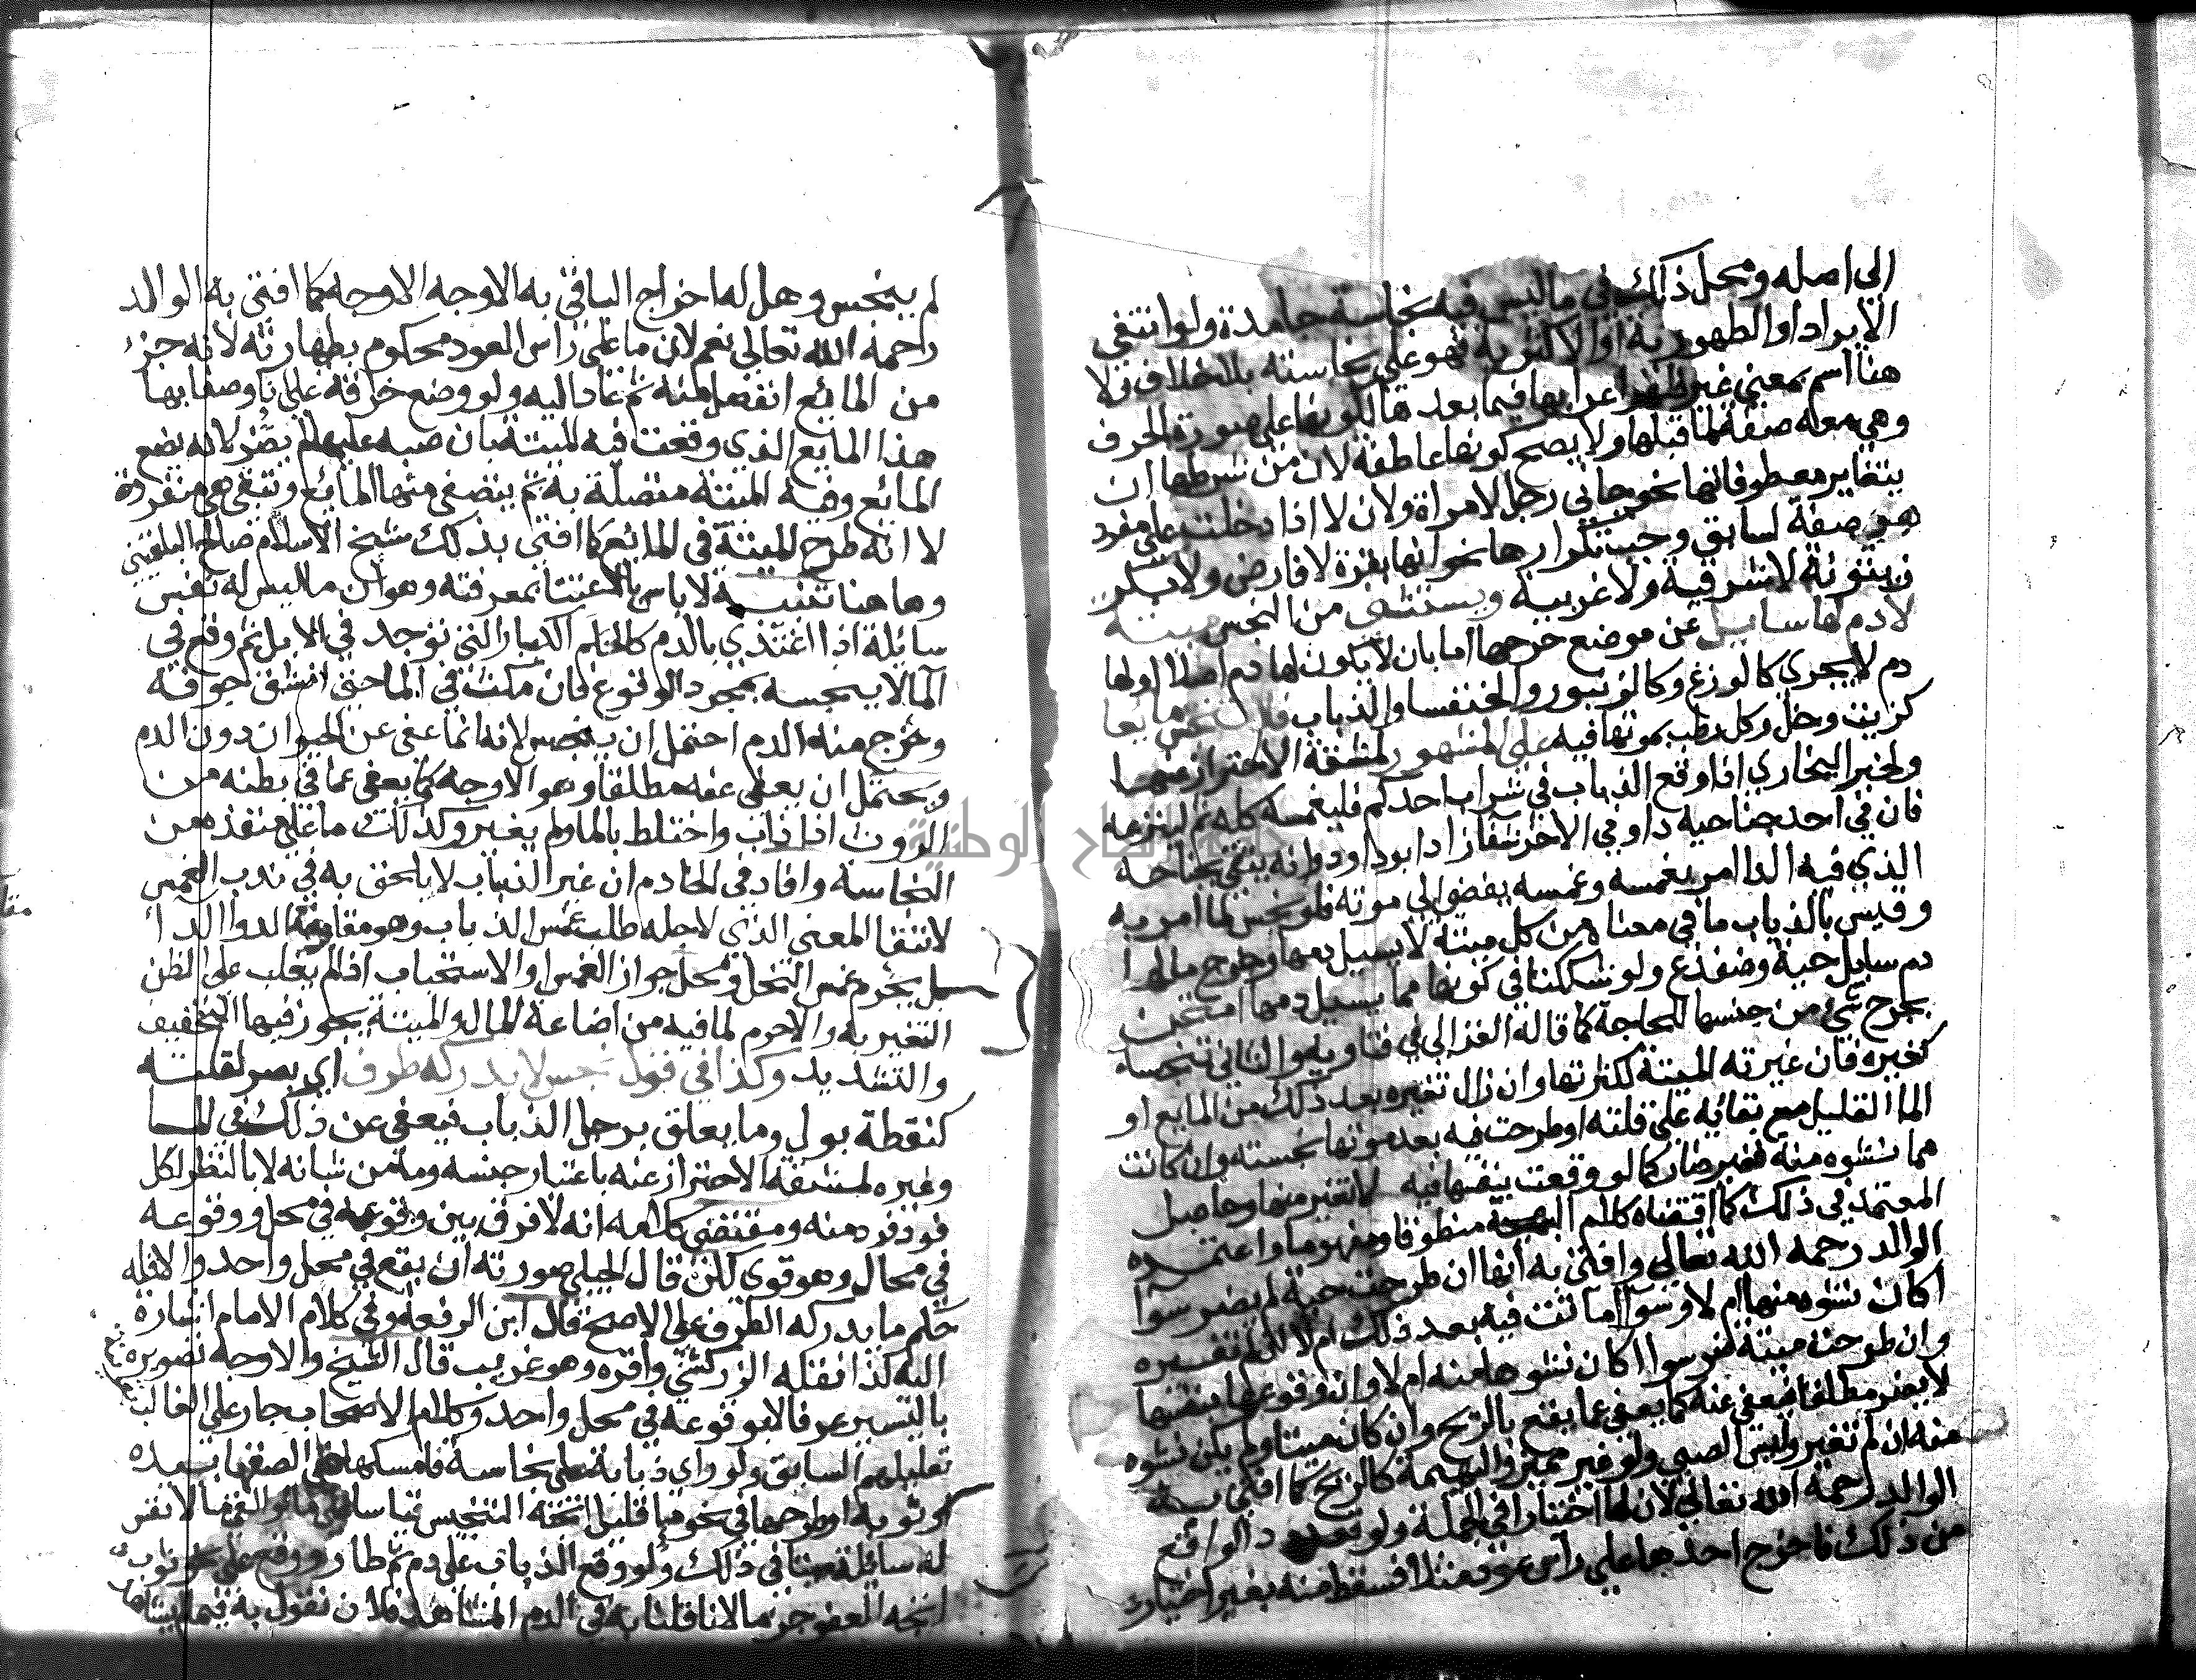 الى اصله ومحل ذلك في ما ليس فيه نجاسة جامدة ولو انتفى
الايراد او الطهورية او الاكثرية فهو على نجاسته بلا خلاف ولا
هنا اسم بمعنى غير ظهر اعرابها فيما بعدها لكونها على صورة الحرف
وهي معه صفة لما قبلها ولا يصح كونها عاطفة لان من شرطها ان
يتغاير معطوفانها نحو جاني رجل لا امراة ولان لا اذا دخلت على مفرد
هو صفة لسابق وجب تكرارها نحو انها بقرة لا فارض ولا بكر
زيتونة لا شرقية ولا غربية ويستثنى من النجس ميتة
لا دم لها سايل عن موضع جرحها اما بان لا يكون لها دم اصلا او لها
دم لا يجري كالوزغ وكالزنبور والخنفسا والذباب فلا تنجس مايعا
كزيت وخل وكل رطب بموتها فيه على المشهور لمشقة الاحتراز عنها
ولخبر البخاري اذا وقع الذباب في شراب احدكم فليغمسه كله ثم لينزعه
فان في احد جناحيه داء وفي الاخر شفا زاد ابو داود وانه يتقي بجناحه
الذي فيه الدا امر بغمسه وغمسه يفضي الى موته فلو نجس لما امر به
وقيس بالذباب ما في معناه من كل ميتة لا يسيل دمها وخرج ما لها
دم سايل حية وضفدع ولو شككنا في كونها مما يسيل دمها امتحن
بجرح شي من جنسها للحاجة كما قاله الغزالي في فتاويه والثاني تنجسه
كغيره فان غيرته الميتة لكثرتها وان زال تغيره بعد ذلك من المايع او
الما القليل مع بقائه على قلته او طرحت فيه بعد موتها نجسته وان كانت
مما نشوه منه فغير ضار كما لو وقعت بنفسها فيه لا تغير منها وحاصل
المعتمد في ذلك كما اقتضاه كلام البهجة منطوقا ومفهوما واعتمده
الوالد رحمه الله تعالى وافتى به انها ان طرحت حية لم يضر سوا
اكان نشوه منها ام لا وسوا اماتت فيه بعد ذلك ام لا ان لم تغيره
وان طرحت ميتة ضر سوا اكان نشوها منه ام لا وان وقوعها بنفسها
لا يضر مطلقا فيعفى عنه كما يعفى عما يقع بالريح وان كان ميتا ولم يكن نشوه
منه ان لم تغير وليس الصبي ولو غير مميز والبهيمة كالريح كما افتى به
الوالد رحمه الله تعالى لان لها اختيارا في الجملة ولو تعدد الواقع
من ذلك فاخرج احدها على راس عود مثلا فسقط منه بغير اختياره
لم ينجس وهل له اخراج الباقي به الاوجه الاوجه كما افتى به الوالد
رحمه الله تعالى نعم لان ما على راس العود محكوم بطهارته لانه جزء
من المائع انفصل منه ثم عاد اليه ولو وضع خرقة على انا وصفا بها
هذا المايع الذي وقعت فيه الميتة بان صبه عليها لم يضر لانه يضع
المائع وفيه الميتة متصلة به ثم يتصفى منها المائع وتبقى هي منفردة
لا انه طرح الميتة في المائع كما افتى بذلك شيخ الاسلام صالح البلقيني
وها هنا تنبيه لا باس بالاعتنا بمعرفته وهو ان ما ليس له نفس
سائلة اذا اغتذى بالدم كالحلم الكبار التي توجد في الابل ثم وقع في
الما لا ينجسه بمجرد الوقوع فان مكث في الما حتى انشق جوفه
وخرج منه الدم احتمل ان ينجس لانه انما عفي عن الحيوان دون الدم
ويحتمل ان يعفى عنه مطلقا وهو الاوجه كما يعفى عما في بطنه من
الروث اذا ذاب واختلط بالما ولم يغير وكذلك ما على منفذه من
النجاسة وافاد في الخادم ان غير الذباب لا يلحق به في ندب الغمس
لانتفا المعنى الذي لاجله طلب غمس الذباب وهو مقاومة الدوا الدا
بل يحرم غمس النحل ومحل جواز الغمس او الاستحباب اذا لم يغلب على الظن
التغير به والا حرم لما فيه من اضاعة المال والميتة يجوز فيها التخفيف
والتشديد وكذا في قول نجس لا يدركه طرف اي بصر لقلته
كنقطة بول وما يعلق برجل الذباب فيعفى عن ذلك في الما
وغيره لمشقة الاحتراز عنه باعتبار جنسه وما من شانه لا بالنظر لكل
فرد فرد منه ومقتضى كلامه انه لا فرق بين وقوعه في محل ووقوعه
في محال وهو قوي لكن قال الجيلي صورته ان يقع في محل واحد والا فله
حكم ما يدركه الطرف على الاصح قال ابن الرفعة وفي كلام الامام اشارة
اليه كذا نقله الزركشي واقره وهو غريب قال الشيخ والاوجه تصويره
باليسير عرفا لا بوقوعه في محل واحد وكلام الاصحاب جار على الغالب
تعليلهم السابق ولو راى ذبابة على نجاسة فامسكها حتى الصقها ببدنه
او ثوبه او طرحها في نحو ما قليل اتجه التنجيس قياسا على ما لو القى ما لا نفس
له سائلة ميتا في ذلك ولو وقع الذباب على دم ثم طار ووقع على نحو ثوب
اتجه العفو جزما لانا قلنا به في الدم المشاهد فلان نقول به فيما لم يشاهد